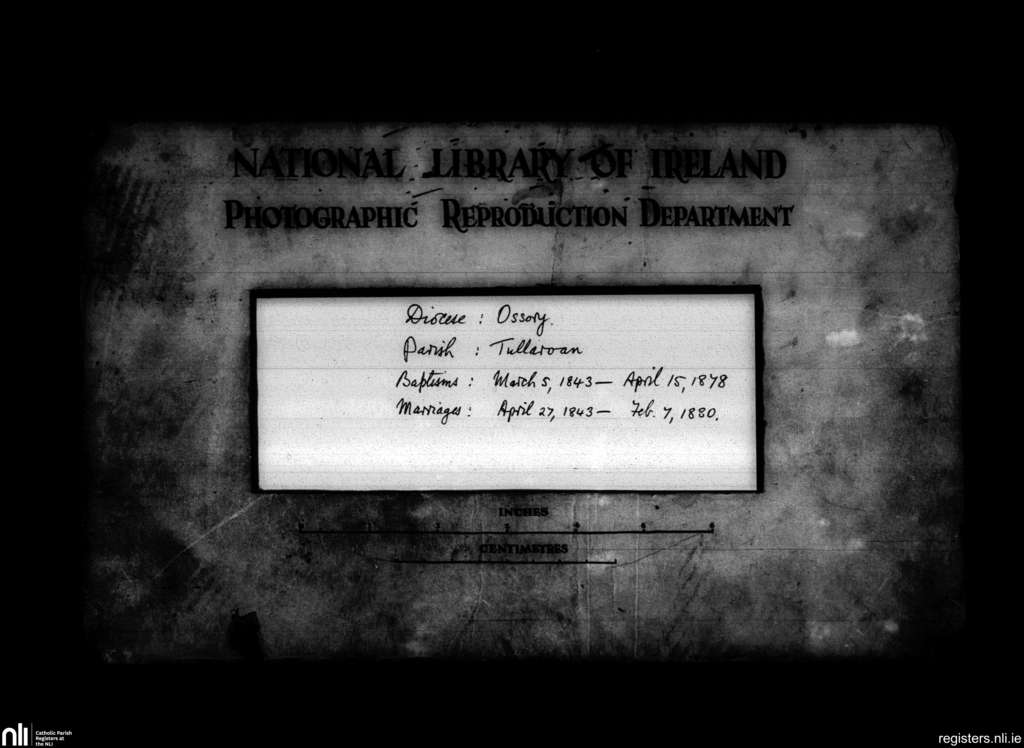 NATIONAL LIBRARY OF IRELAND
PHOTOGRAPHIC REPRODUCTION DEPARTMENT
Diocese : Ossory.
Parish : Tullaroan
Baptisms : March 5, 1843 — April 15, 1878
Marriages : April 27, 1843 — Feb. 7, 1880.
INCHES
CENTIMETRES
nli
Catholic Parish
Registers at
the NLI
registers.nli.ie